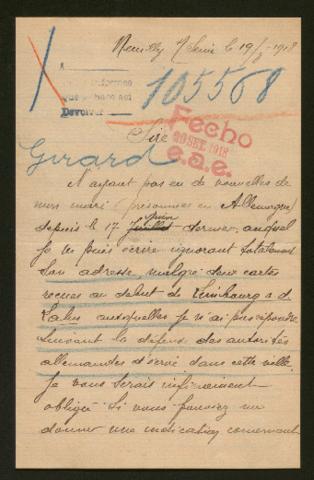 Neuilly s/ Seine le 19/9 1918
105568
Devolver
Fecho
20 SET. 1918
e.a.e.
Sire
Girard
N'ayant pas eu de nouvelles de
mon mari (prisonnier en Allemagne)
depuis le 17 Juillet juin dernier, auquel
je ne puis écrire ignorant totalement
son adresse, malgré deux cartes
reçues au début de Limbourg a d
Lahn auxquelles je n'ai pu répondre
suivant la défense des autorités
allemandes d'écrire dans cette ville
Je vous serais infiniment
obligée si vous pouviez me
donner une indication concernant